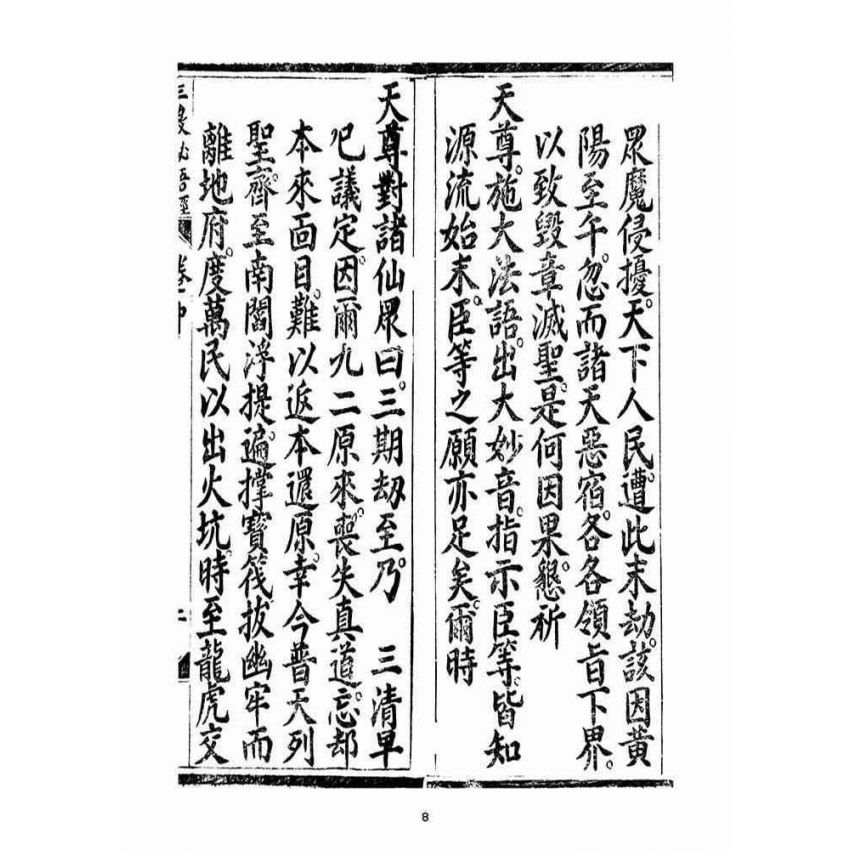 眾魔侵擾。天下人民。遭此末劫。該因黃
陽至午。忽而諸天惡宿。各各領旨下界。
以致毀章滅聖。是何因果。懇祈
天尊。施大法語。出大妙音。指示臣等。皆知
源流始末。臣等之願亦足矣。爾時
天尊對諸仙眾曰。三期劫至。乃　三清早
已議定。因爾九二原來。喪失真道。忘却
本來面目。難以返本還原。幸今普天列
聖。齊至南閻浮提。遍撑寶筏。拔幽牢而
離地府。度萬民以出火坑。時至龍虎交
經 卷
8